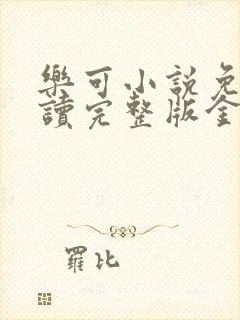 樂可小說免
讀完整版全
羅比